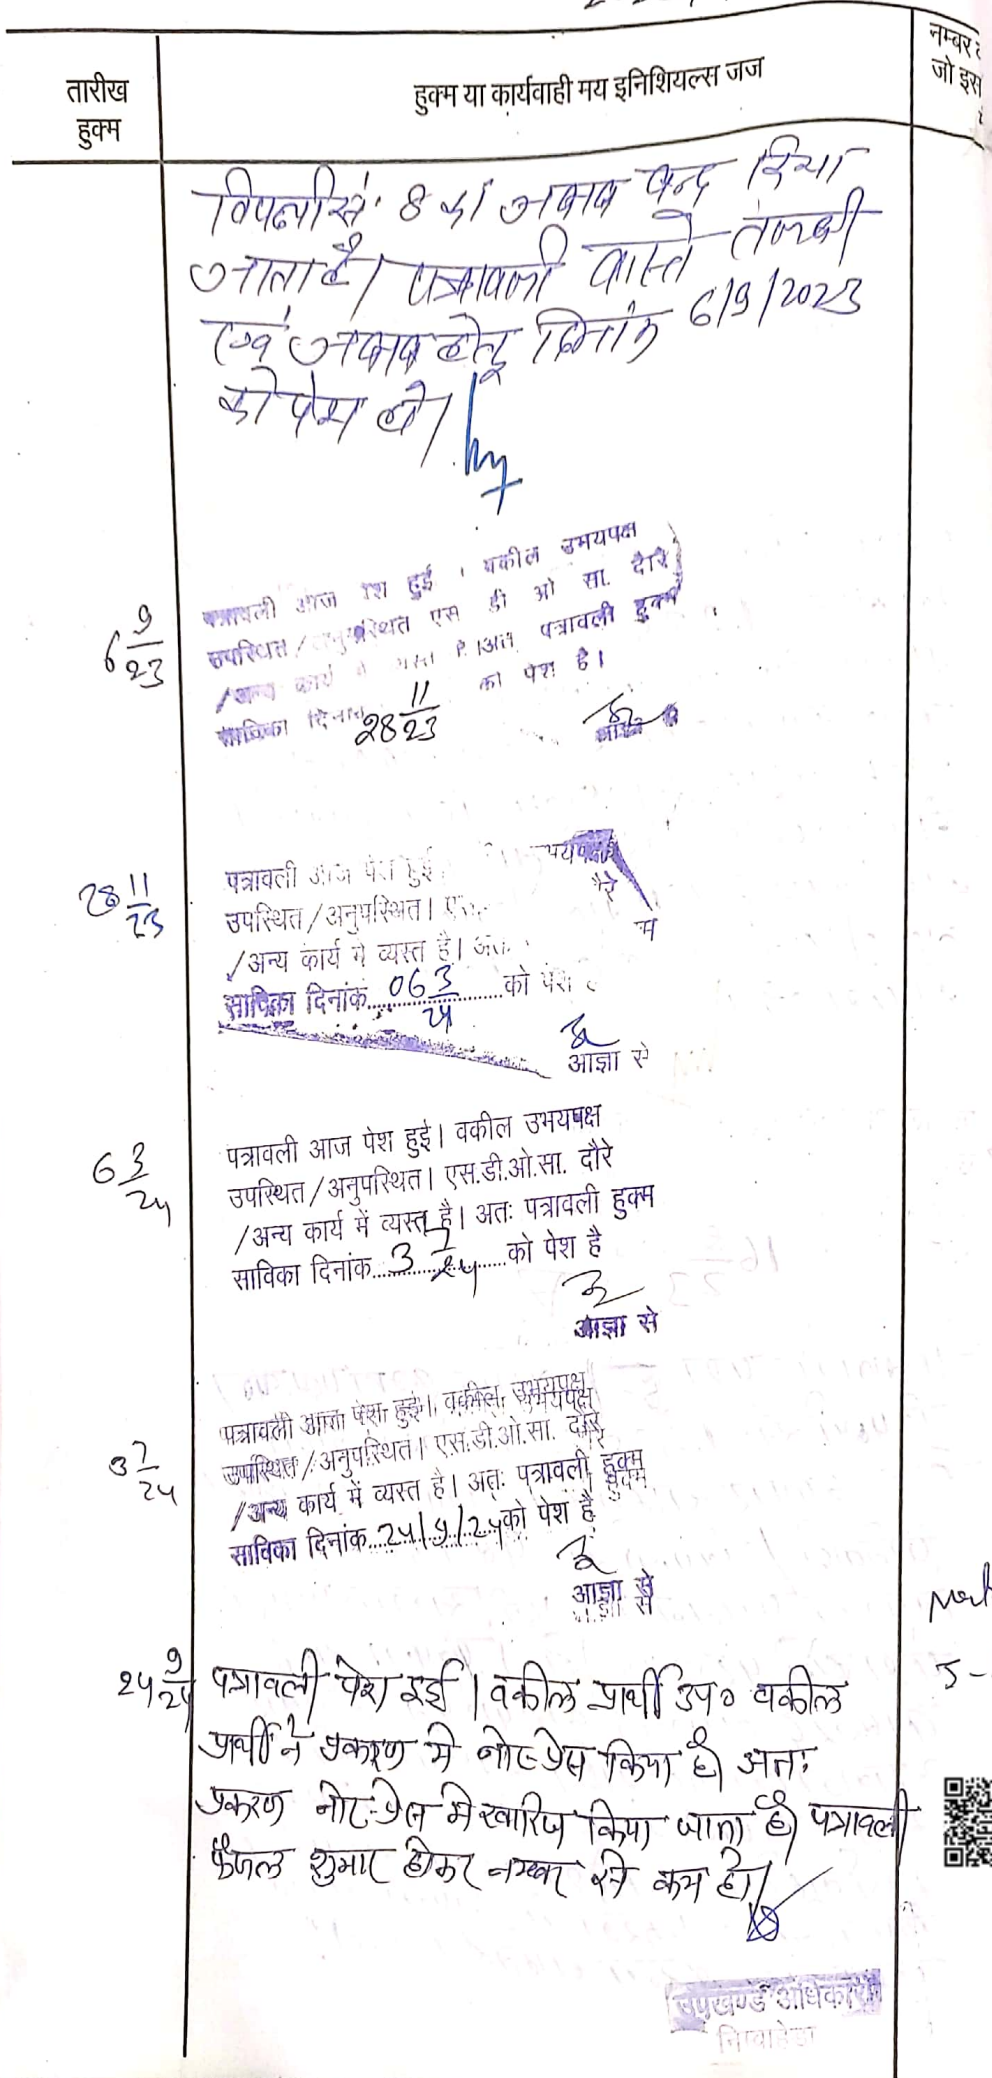 तारीख
हुक्म
हुक्म या कार्यवाही मय इनिशियल्स जज
नम्बर
जो इस
विपक्षी सं. 8 का जवाब बन्द किया
जाता है। पत्रावली वास्ते तलबी
एवं जवाब हेतु दिनांक 6/9/2023
को पेश हो।
6 9/23
पत्रावली आज पेश हुई । वकील उभयपक्ष
उपस्थित/अनुपस्थित एस डी ओ सा. दौरे
/अन्य कार्य में व्यस्त है।अतः पत्रावली हुक्म
साविका दिनांक 28 11/23 को पेश है।
28 11/23
पत्रावली आज पेश हुई उभयपक्ष
उपस्थित/अनुपस्थित। दौरे
/अन्य कार्य में व्यस्त है। अतः
साविका दिनांक 06 3/24 को पेश
आज्ञा से
6 3/24
पत्रावली आज पेश हुई। वकील उभयपक्ष
उपस्थित/अनुपस्थित। एस.डी.ओ.सा. दौरे
/अन्य कार्य में व्यस्त है। अतः पत्रावली हुक्म
साविका दिनांक 3 7/24 को पेश है
आज्ञा से
3 7/24
पत्रावली आज पेश हुई। वकील उभयपक्ष
उपस्थित/अनुपस्थित। एस.डी.ओ.सा. दौरे
/अन्य कार्य में व्यस्त है। अतः पत्रावली हुक्म
साविका दिनांक 24/9/24 को पेश है
आज्ञा से
24 9/24
पत्रावली पेश हुई। वकील प्रार्थी उप० वकील
प्रार्थी ने प्रकरण में नोट-प्रेस किया है। अतः
प्रकरण नोट-प्रेस में खारिज किया जाता है। पत्रावली
फैजल शुमार होकर नम्बर से कम हो।
5-
उपखण्ड अधिकारी
निम्बाहेड़ा